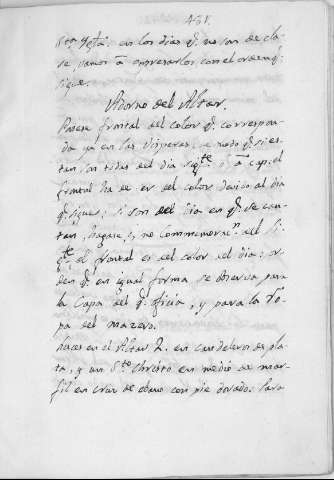 451.
en los dias q̃. no son de cla-
se vamos à expresarlos con el orden q̃.
sigue.
Adorno del Altar.
Ponese frontal del color q̃. correspon-
da ya en las Visperas, de modo q̃. si es-
tan son todas del dia sigte. ò à cap. el
frontal ha de ser del color devido al dia
q̃. sigue; si son del dia en q̃. se can-
tan, hagase, ò no commemoracn. del Si-
gte. el frontal es del color del dia; or-
den q̃. en igual forma se observa para
la Capa del q̃. oficia, y para la Ro-
pa del macero.
luces en el Altar 2. en candeleros de pla-
ta, y un Sto. Christo en medio de mar-
fil en cruz de ebano con pie dorado: Para